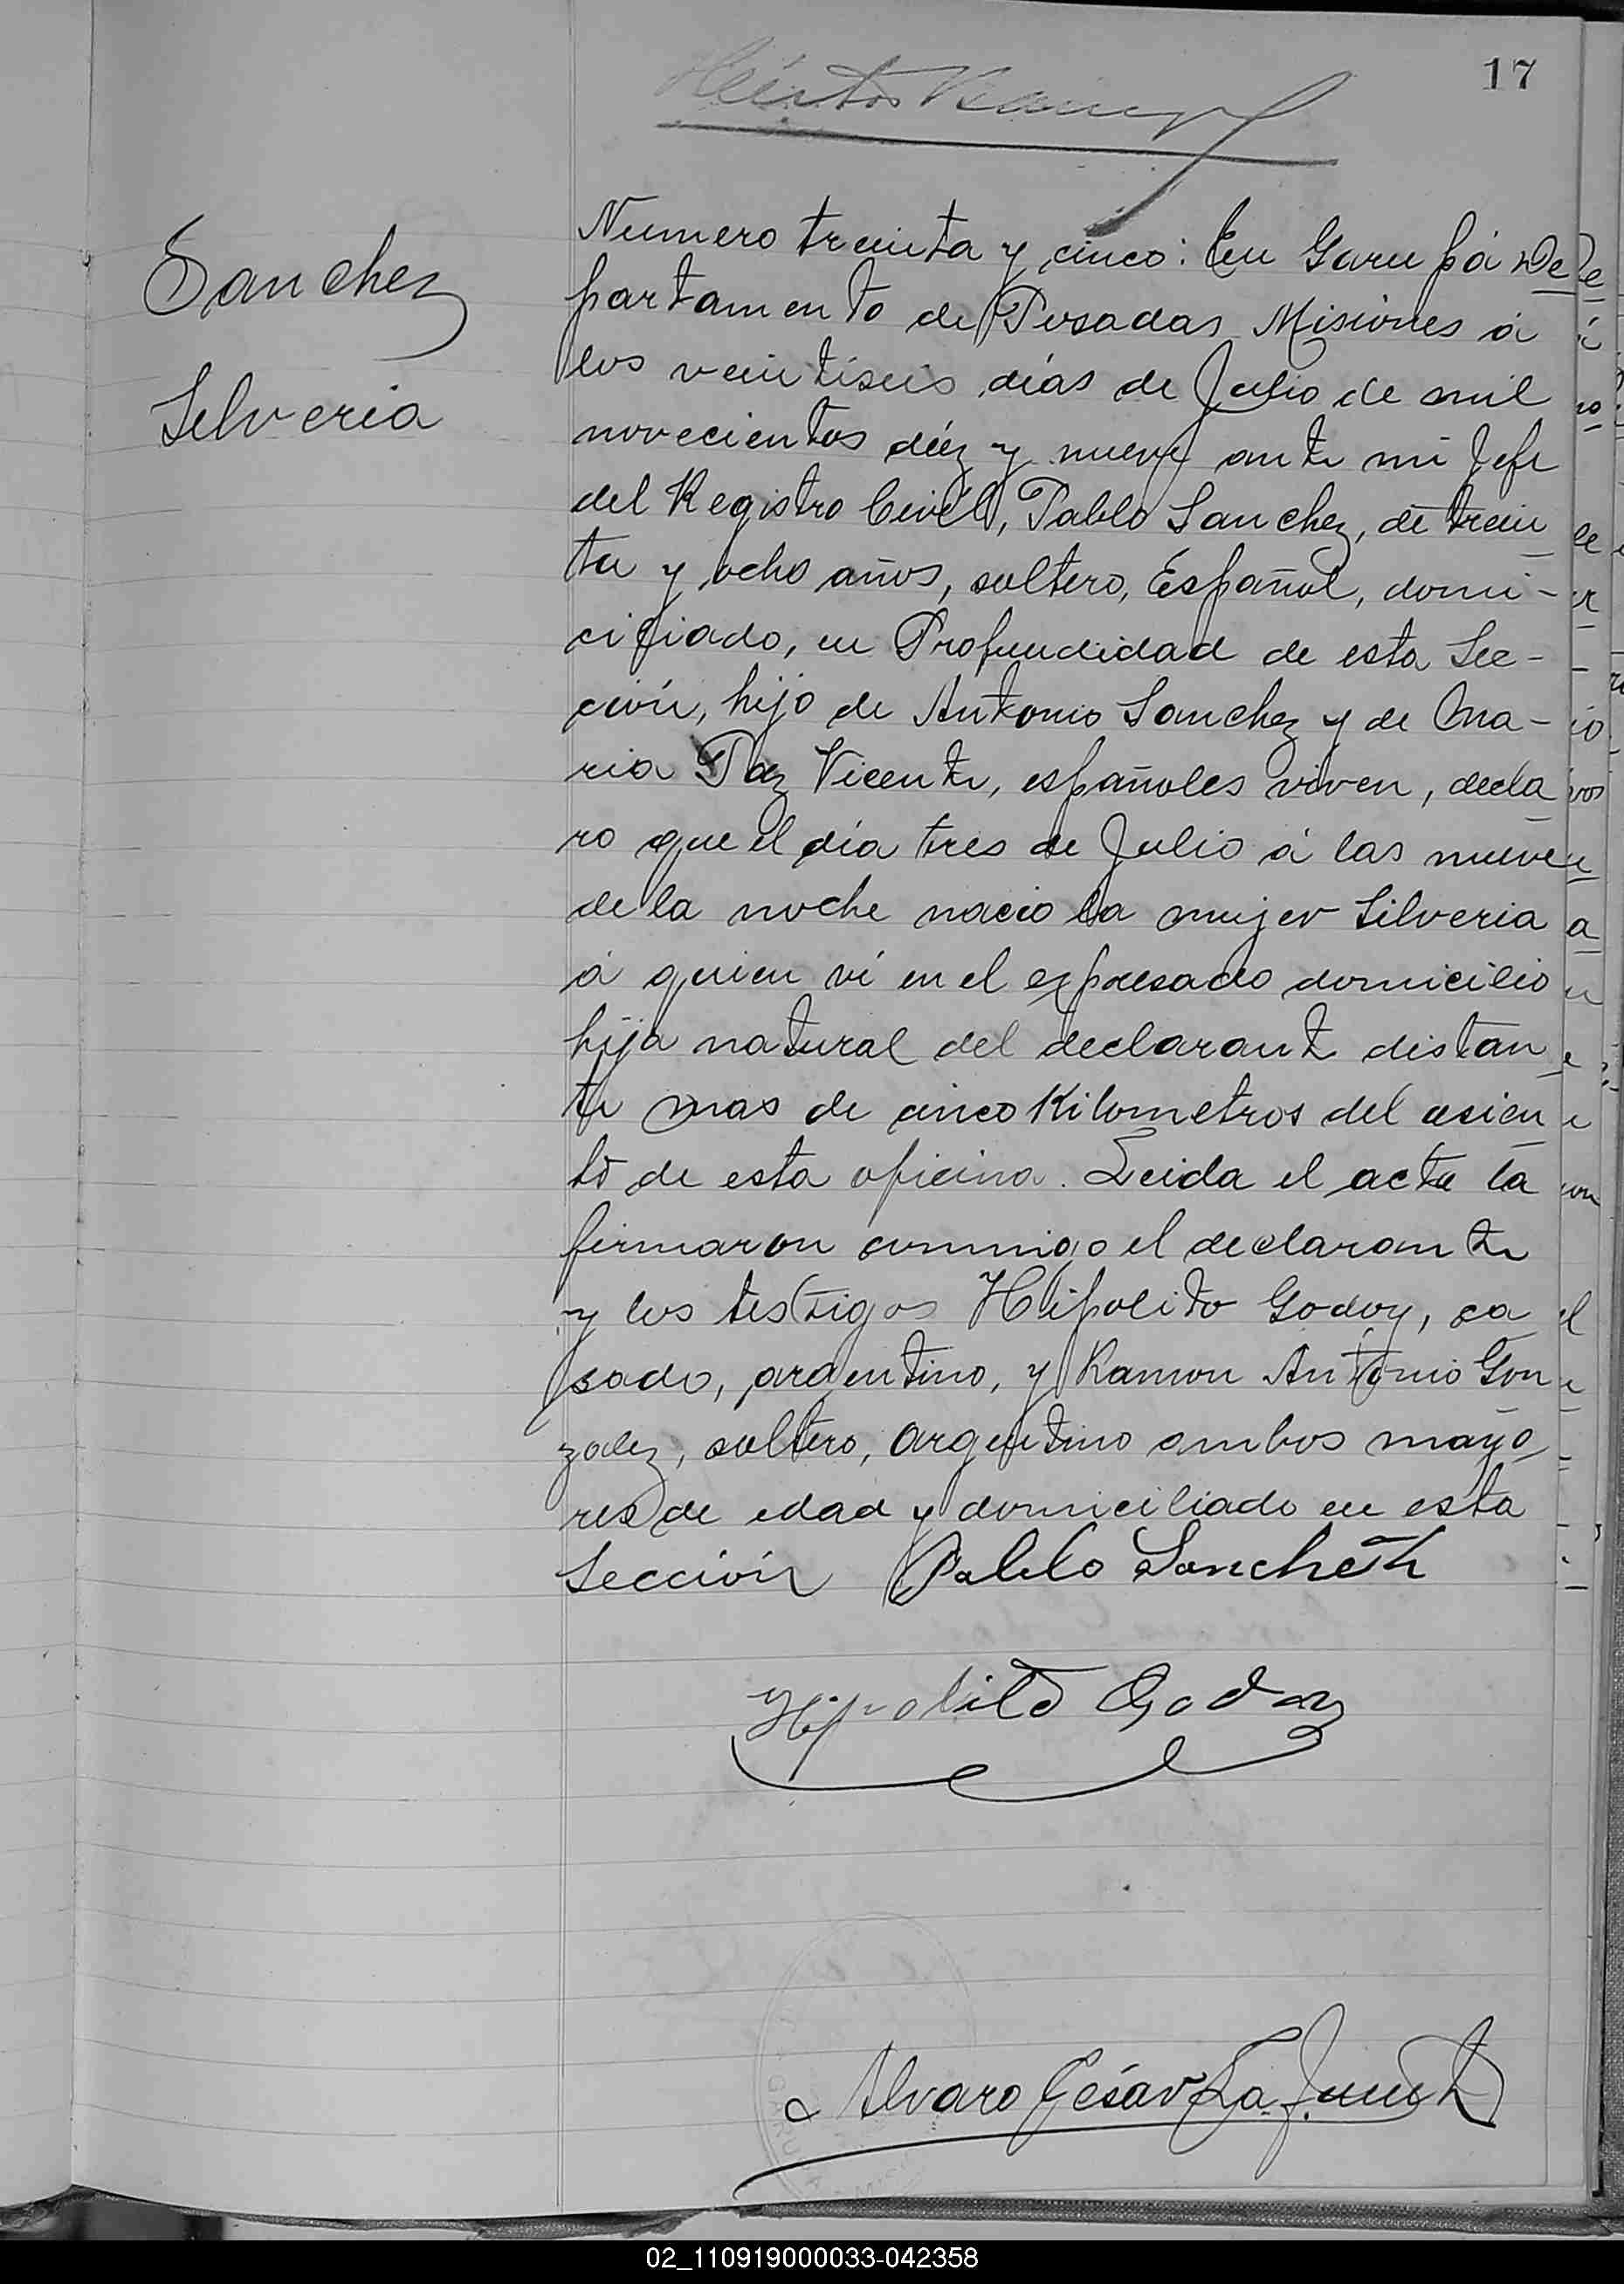 17
Sanchez
Silveria
Numero treinta y cinco: En Garupá De
partamento de Posadas Misiones á
los veintiseis días de Julio de mil
novecientos diez y nueve ante mi Jefe
del Registro Civil, Pablo Sanchez, de trein
ta y ocho años, soltero, Español, domi-
ciliado, en Profundidad de esta Sec-
ción, hijo de Antonio Sanchez y de Ma-
ria Paz Vicente, españoles viven, decla
ro que el día tres de Julio á las nueve
de la noche nacio la mujer Silveria
á quien ví en el expresado domicilio
hija natural del declarante distan
te mas de cinco Kilometros del asien
to de esta oficina. Leida el acta la
firmaron conmigo el declarante
y los testigos Hipolito Godoy, ca
sado, argentino, y Ramon Antonio Gon
zalez, soltero, argentino ambos mayo
res de edad y domiciliado en esta
Sección Pablo Sancheth
Hipolito Godoy
Alvaro César La
02_110919000033-042358